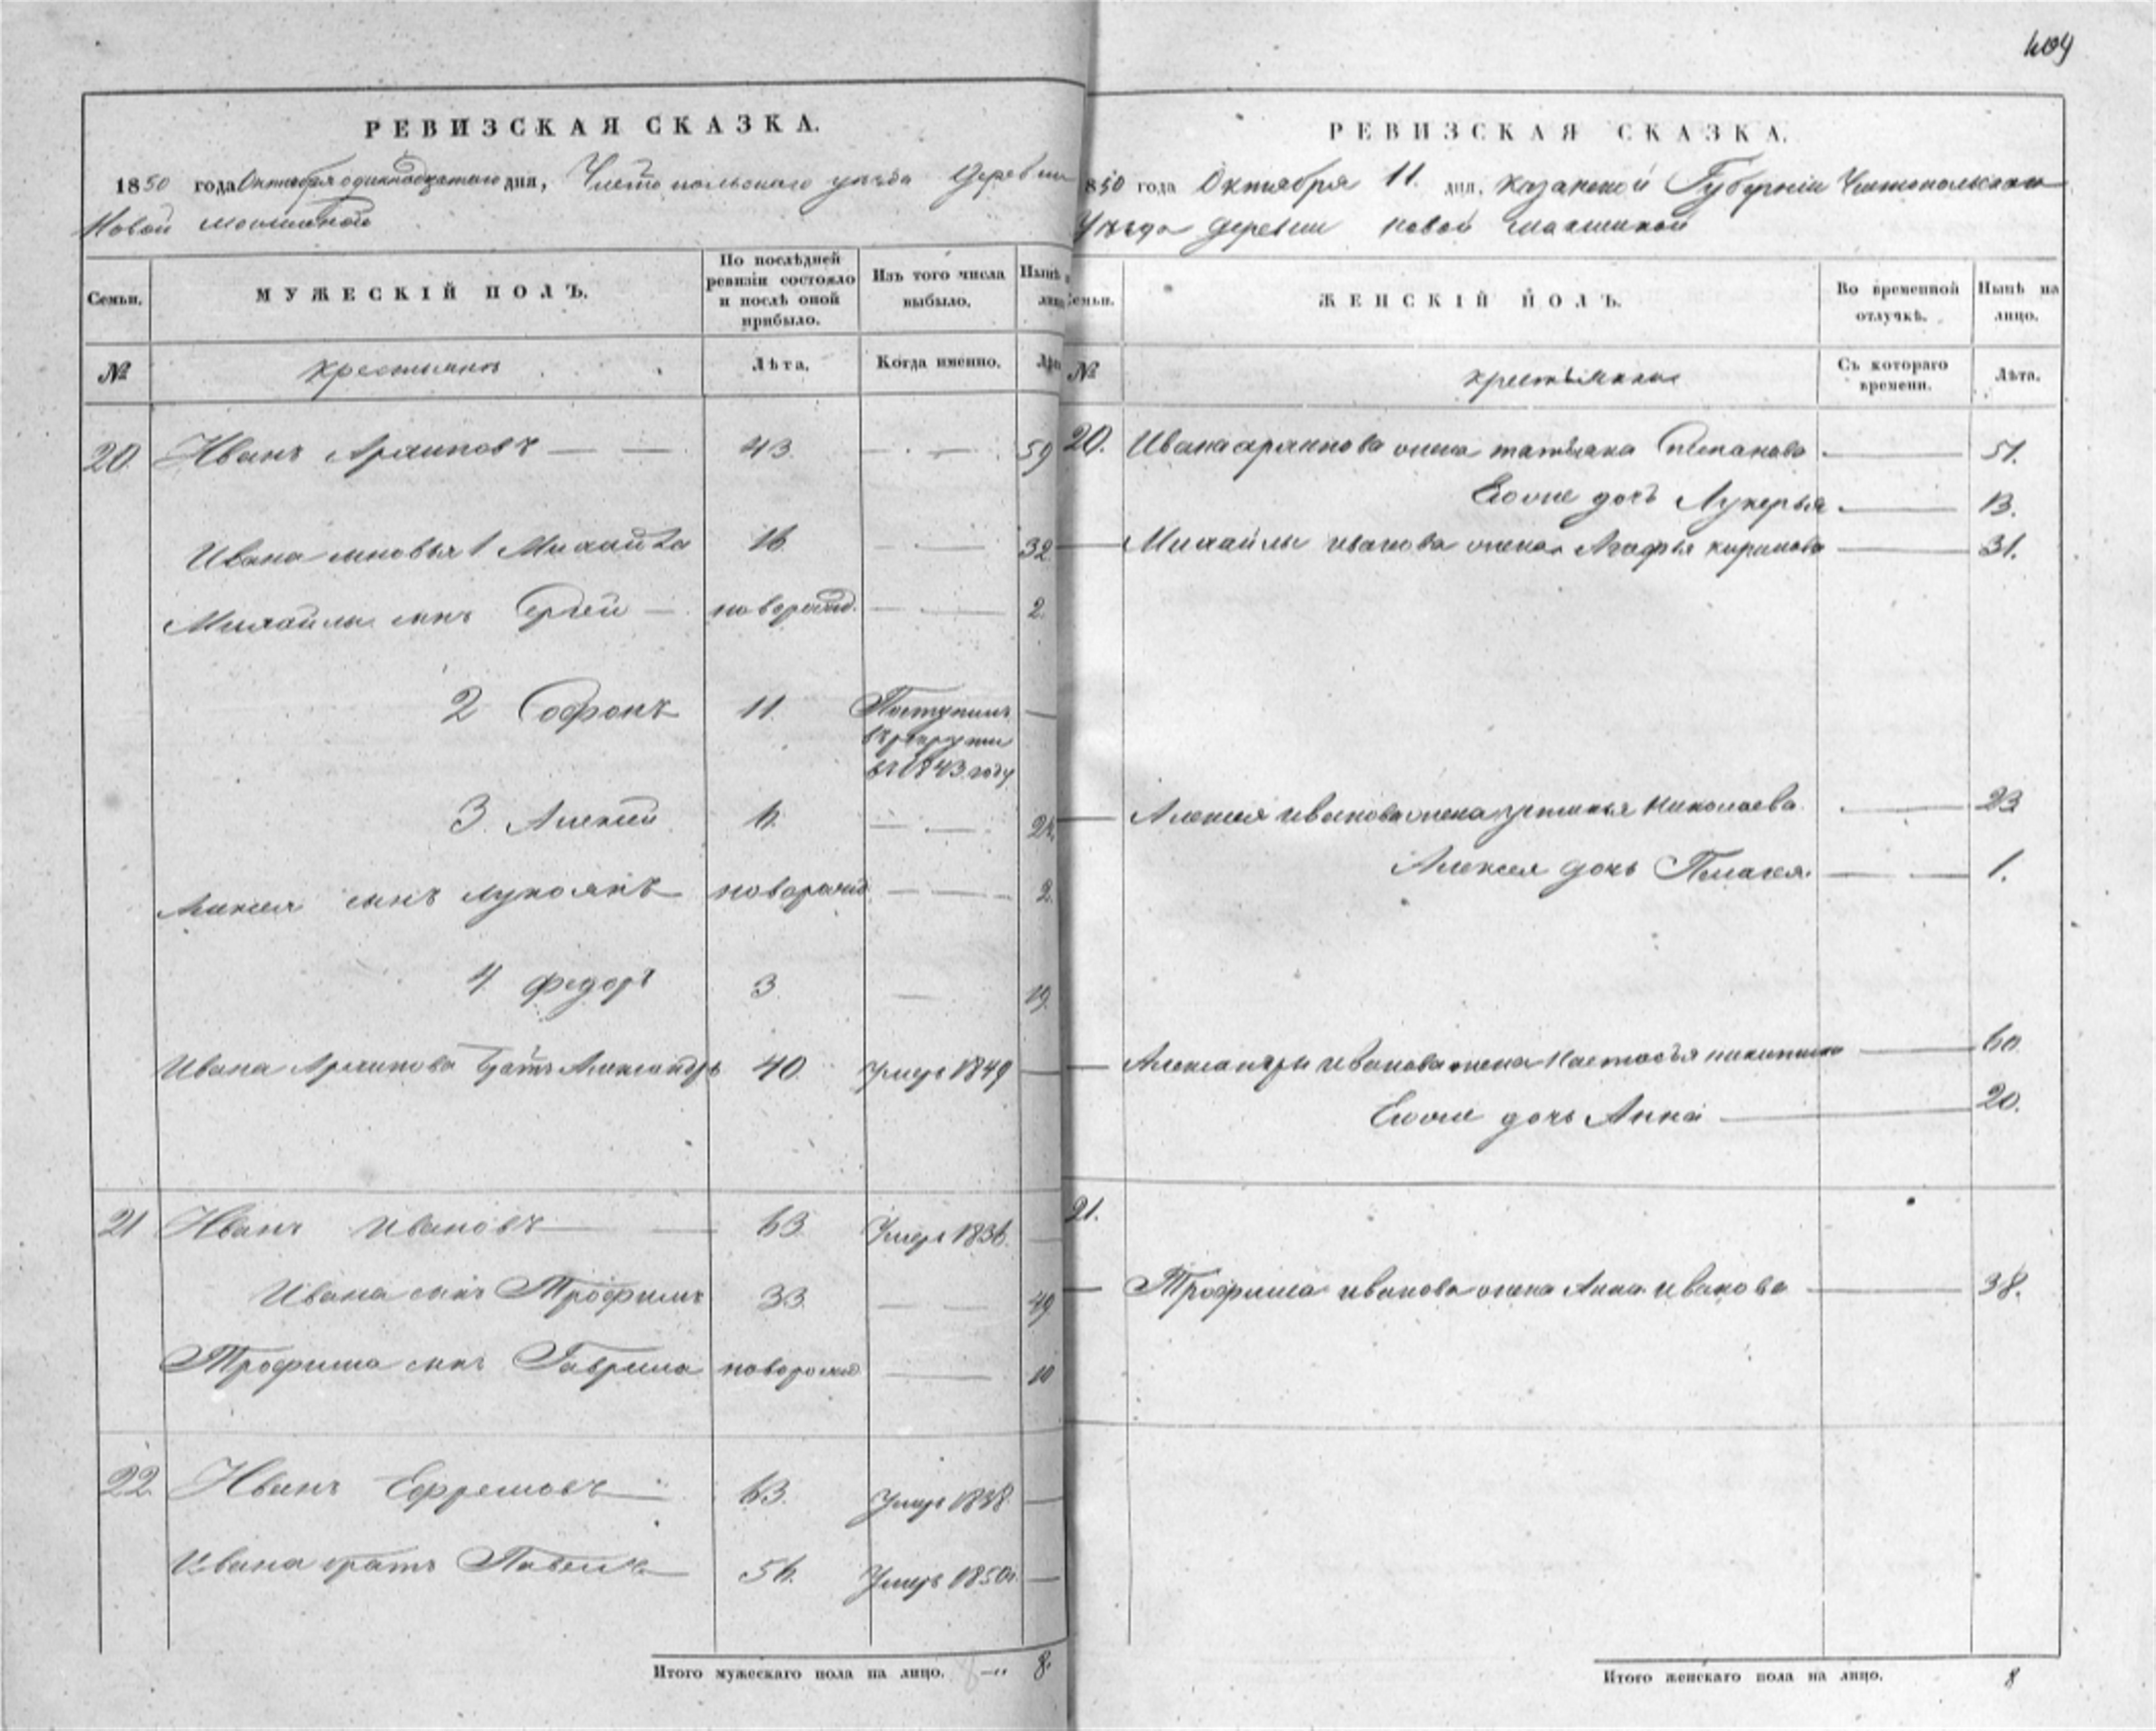 409
РЕВИЗСКАЯ СКАЗКА.
1850 года Октября одиннадцатого дня, Чистопольского уезда деревни
Новой
Семьи.
МУЖЕСКІЙ ПОЛЪ.
По послѣдней ревизіи состояло и послѣ оной прибыло.
Изъ того числа выбыло.
Нынѣ на лицо
№
крестьяне
Лѣта.
Когда именно.
Лѣта
20. Иванъ Архиповъ 43. 59
Ивана сыновья 1 Михайла 16. 32
Михайлы сынъ Сергей новорожд. 2.
2 Софонъ 11. Поступилъ
въ рекруты
въ 1843 году
3. Алексей 6. 22.
Алексея сынъ Лукоянъ новорожд 2.
4. Федоръ 3. 19.
Ивана Архипова братъ Александръ 40. умеръ 1849
21 Иванъ Ивановъ 63. Умеръ 1836.
Ивана сынъ Трофимъ 33. 49
Трофима сынъ Гаврила новорожд 10
22. Иванъ Ефремовъ 63. Умеръ 1838.
Ивана братъ Павелъ 56. Умеръ 1850г.
Итого мужескаго пола на лицо. 8.
РЕВИЗСКАЯ СКАЗКА.
1850 года Октября 11. дня, Казанской Губерніи Чистопольского
Уезда деревни Новой
Семьи.
ЖЕНСКІЙ ПОЛЪ.
Во временной отлучкѣ.
Нынѣ на лицо.
№
крестьянки
Съ котораго времени.
Лѣта.
20. Ивана архипова жена татьяна Степанова 51.
Евоже дочь Лукерья 13.
Михайлы иванова жена Агафья кирилова 31.
Алексея иванова жена устинья Николаева 23
Алексея дочь Пелагея 1.
Александры Иванова жена Настасья никитина 60.
Евоже дочь Анна 20.
21.
Трофима иванова жена Анна Иванова 38.
Итого женскаго пола на лицо. 8